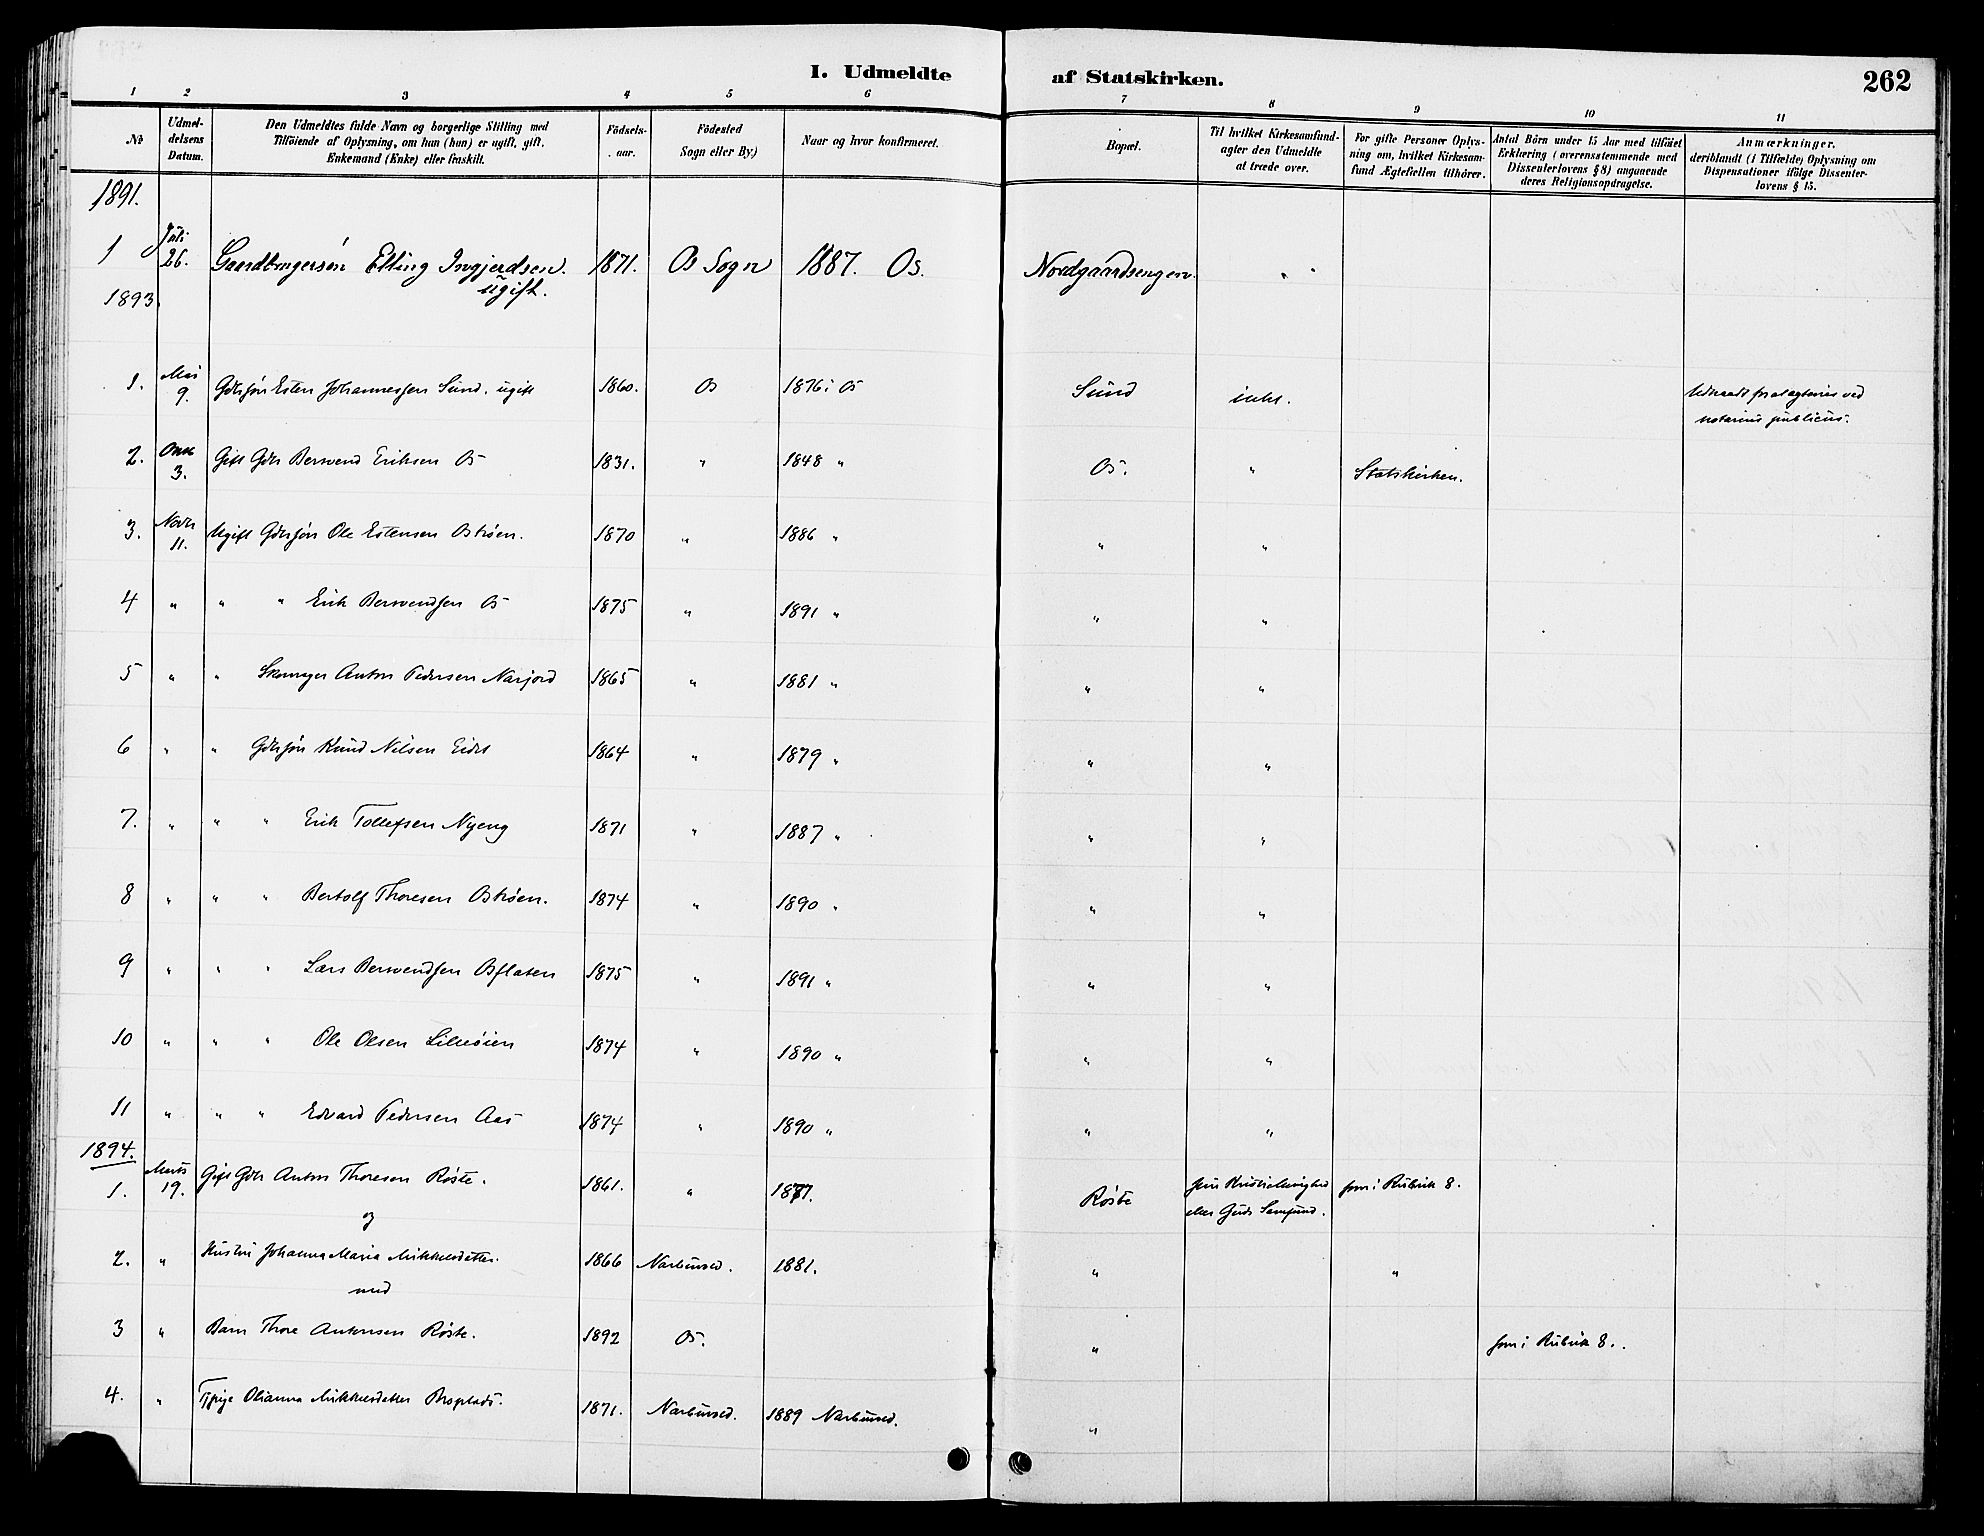 I. Udmeldte af Statskirken. 262
1 2 3 4 5 6 7 8 9 10 11
№
Udmel-
delsens
Datum.
Den Udmeldtes fulde Navn og borgerlige Stilling med
Tilføiende af Oplysning, om han (hun) er ugift, gift,
Enkemand (Enke) eller fraskilt.
Fødsels-
aar.
Fødested
Sogn eller By.)
Naar og hvor konfirmeret.
Bopæl.
Til hvilket Kirkesamfund-
agter den Udmeldte
at træde over.
For gifte Personer Oplys-
ning om, hvilket Kirkesam-
fund Ægtefællen tilhører.
Antal Börn under 15 Aar med tilföiet
Erklæring (overensstemmende med
Dissenterlovens § 8) angaaende
deres Religionsopdragelse.
Anmærkninger.
deriblandt (i Tilfælde) Oplysning om
Dispensationer ifölge Dissenter-
lovens § 15.
1891.
1 Juli 26. Gaardbrugersøn Elling Ingjerdsen. ugift. 1871. Os Sogn 1887. Os. Nordgaardsengen. " "
1893.
1. Mai 9. Gbrsøn Esten Johannessen Sund. ugift 1860. Os 1876 i Os Sund intet. notarius publicus.
2. 3. Gift Gbr Berwend Eriksen Os 1831. " 1848 " Os. " Statskirken.
3. Novbr 11. Ugift Gbrsøn Ole Estensen Oskröen. 1870 " 1886 " " "
4 " " " Erik Berwendsen Os 1875 " 1891 " " "
5 " " Skomager Anton Pedersen Narjord 1865 " 1881 " " "
6 " " Gbrsøn Knud Nilsen Eidet 1864 " 1879 " " "
7. " " " Erik Tollefsen Nyeng 1871 " 1887 " " "
8 " " " Bertolf Thoresen Oskröen. 1874 " 1890 " " "
9 " " " Lars Berwendsen Osflaten 1875 " 1891 " " "
10 " " " Ole Olsen Lilleöien 1874 " 1890 " " "
11 " " " Edvard Pedersen Aas 1874 " 1890 " " "
1894.
1. Marts 19. Gift Gbr Anton Thoresen Röste. 1861. " 1877. Röste eller Guds Samfund. som i Rubrik 8.
og
2. " Hustru Johanna Maria Mikkelsdatter. 1866 Narbuvoll. 1881. " "
med
3 " Barn Thore Antonsen Röste. 1892 Os. " som i Rubrik 8.
4. " Tjpige Olianna Mikkelsdatter 1871. Narbuvoll. 1889 Narbuvoll. "